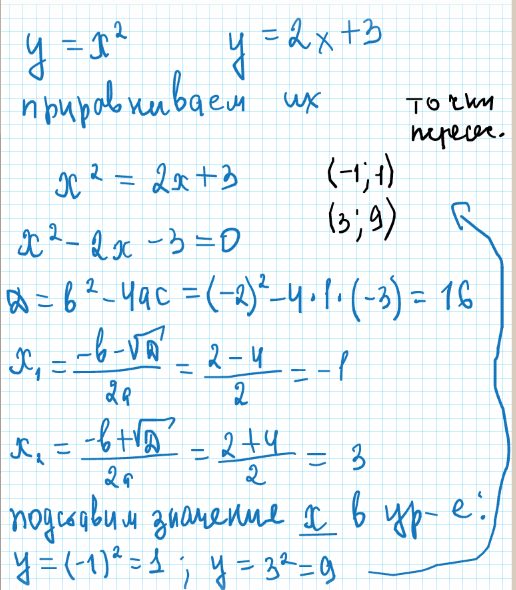 y = x² y = 2x + 3
приравниваем их
точки
пересеч.
x² = 2x + 3
(-1; 1)
(3; 9)
x² - 2x - 3 = 0
D = b² - 4ac = (-2)² - 4·1·(-3) = 16
x₁ = (-b - √D)/2a = (2 - 4)/2 = -1
x₂ = (-b + √D)/2a = (2 + 4)/2 = 3
подставим значение x в ур-е:
y = (-1)² = 1; y = 3² = 9